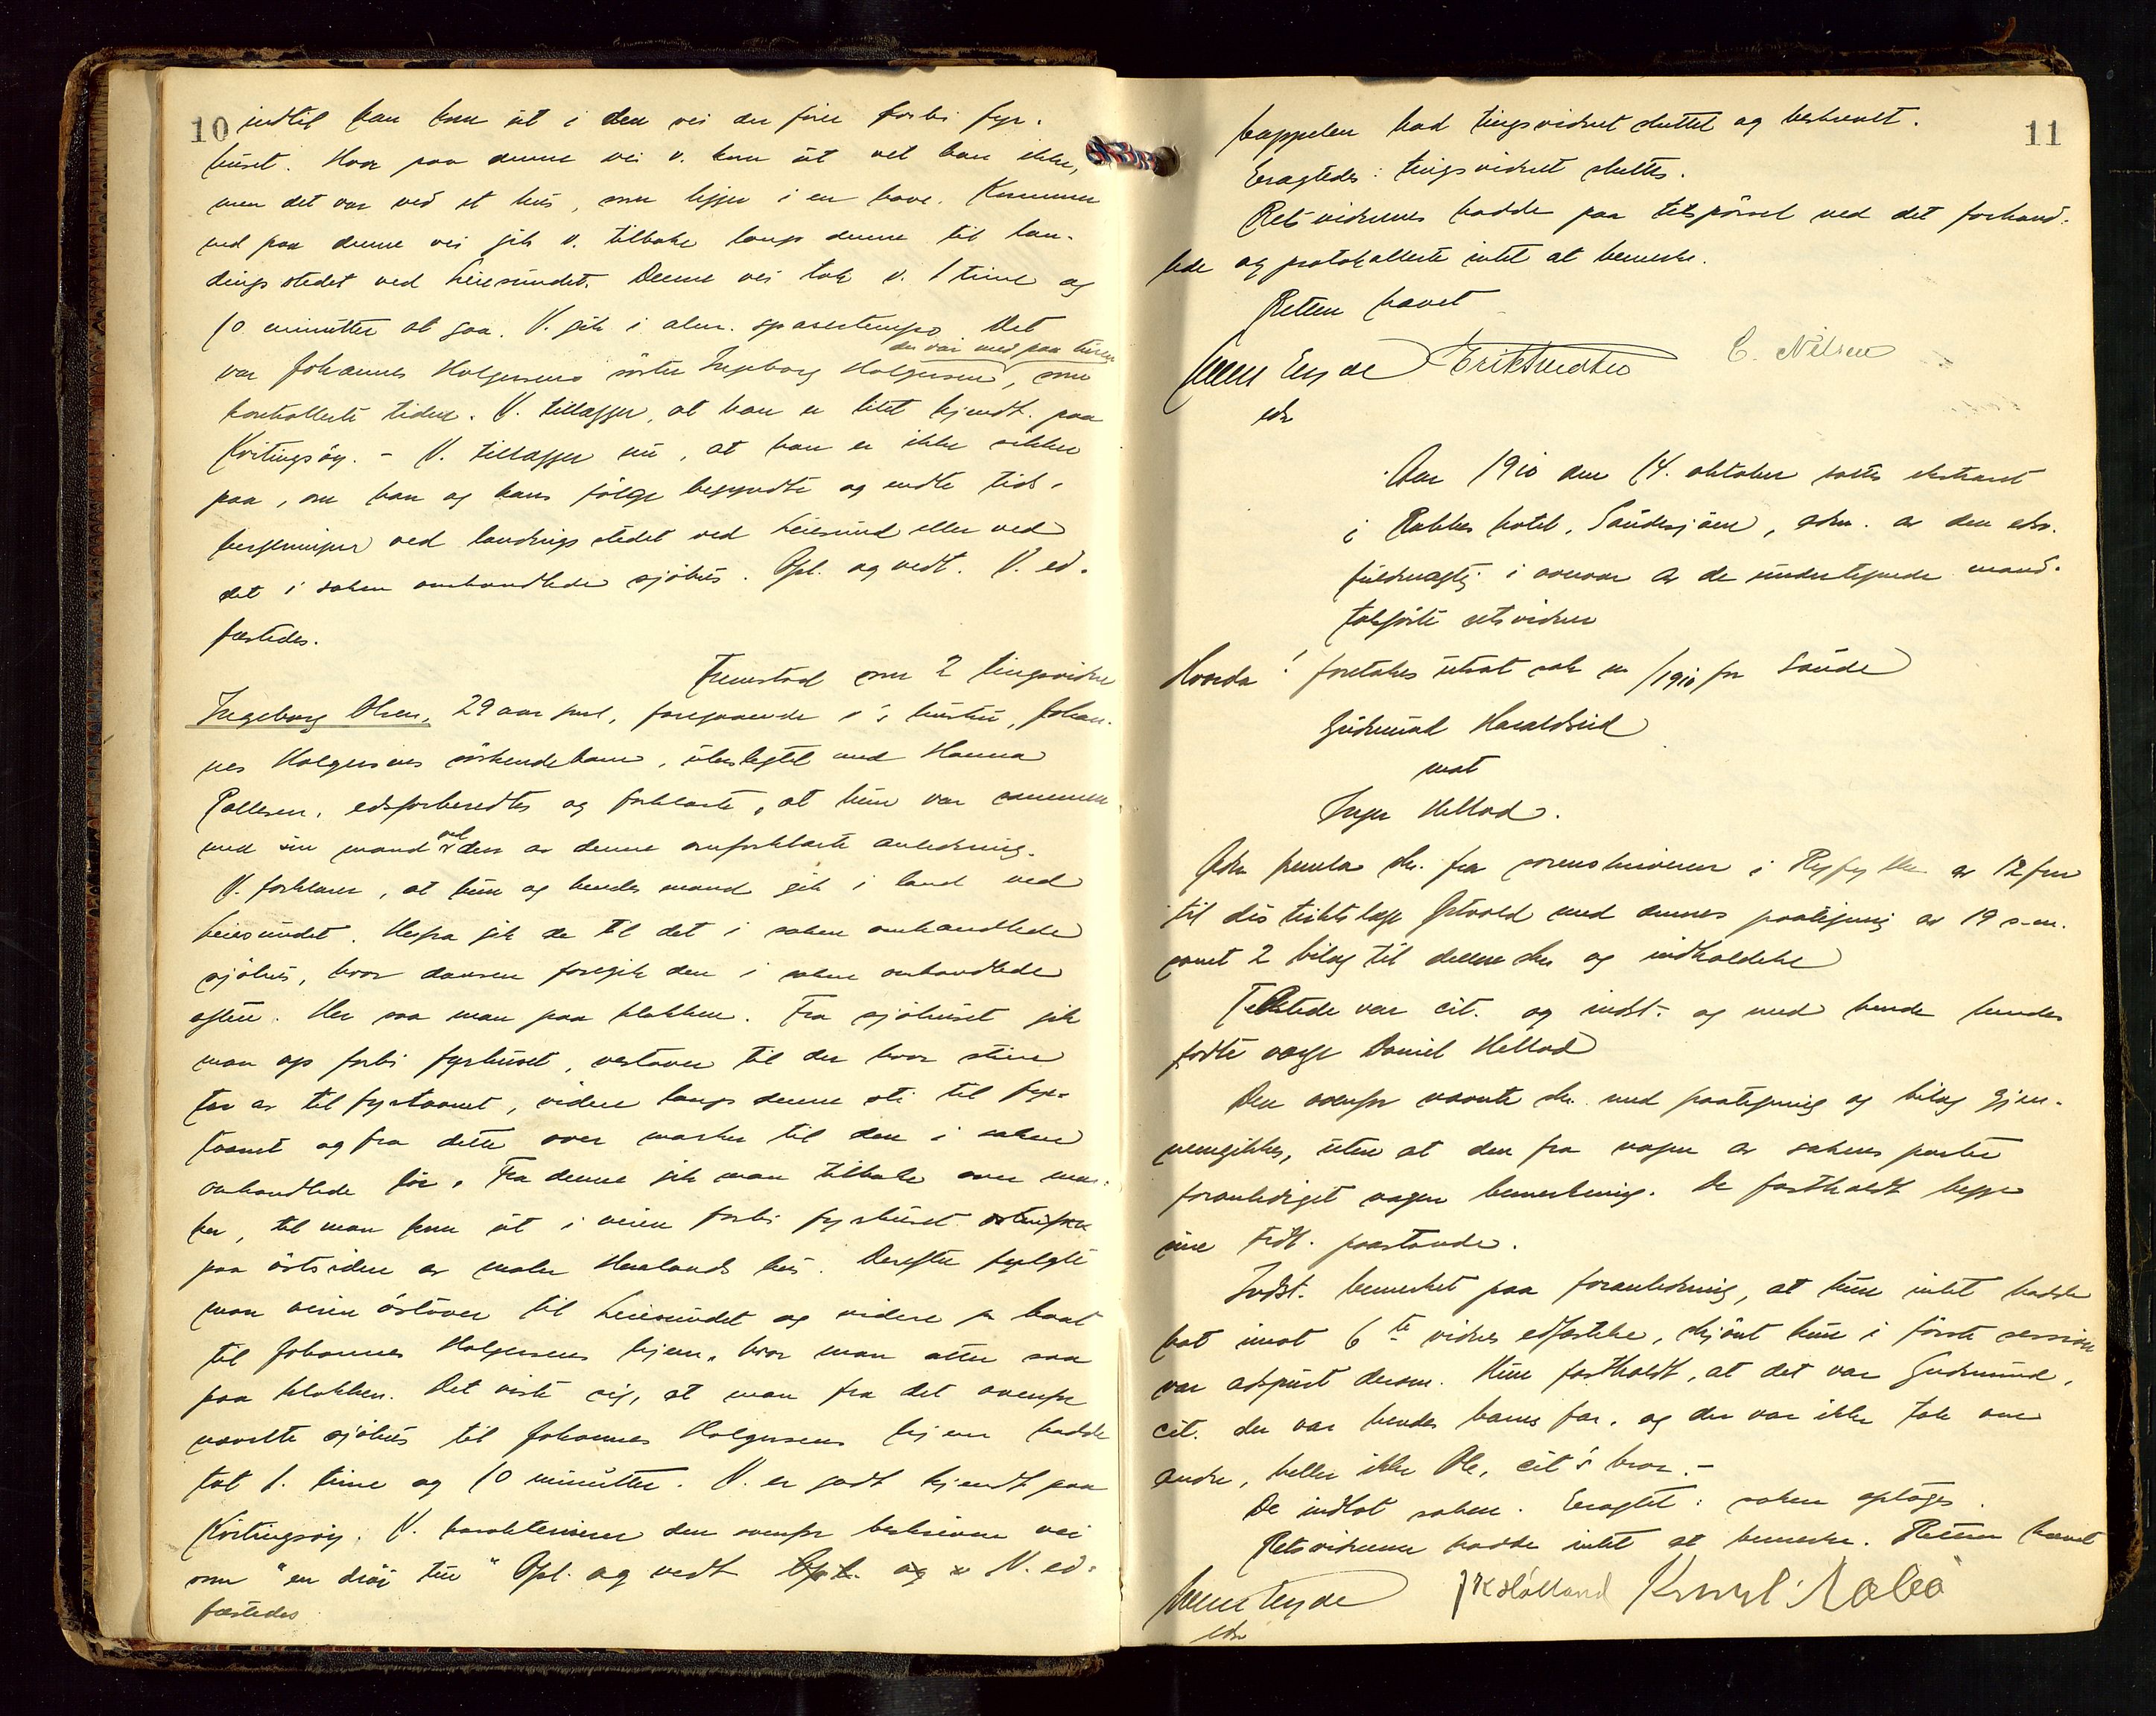 10
indtil han kom ut i den vei der fører forbi fyr-
huset. Hvor paa denne vei v. kom ut vet han ikke,
men det var ved et hus, som ligger i en have. Kommen
ned paa denne vei gik v. tilbake langs denne til lan-
dingsstedet ved Leiesundet. Denne vei tok v. 1 time og
10 minutter at gaa. V. gik i alm. spasertempo. Det
der var med paa turen
var Johannes Holgersens søster Ingeborg Holgersen, som
kontrollerte tiden. V. tillægger, at han er litet kjendt paa
Kvitingsøy. - V. tillægger nu, at han er ikke sikker
paa, om han og hans følge begyndte og endte tids-
beregningen ved landingsstedet ved Leiesund eller ved
det i saken omhandlede sjøhus. Opl. og vedt. V. ed-
fæstedes.
Fremstod som 2 tingsvidne
Ingeborg Olsen, 29 aar gml, foregaaende v's hustru, Johan-
nes Holgersens søskendebarn, ubeslegtet med Hanna
Pallesen, edsforberedtes og forklarte, at hun var sammen
med sin mand ved den av denne omforklarte anledning.
V. forklarer, at hun og hendes mand gik i land ved
Leiesundet. Herfra gik de til det i saken omhandlede
sjøhus, hvor dansen foregik den i saken omhandlede
aften. Her saa man paa klokken. Fra sjøhuset gik
man op forbi fyrhuset, vestover til der hvor stien
tar av til fyrtaarnet, videre langs denne sti til fyr-
taarnet og fra dette over marken til den i saken
omhandlede løe. Fra denne gik man tilbake over mar-
ken, til man kom ut i veien forbi fyrhuset
paa østsiden av maler Hualands hus. Derefter fulgte
man veien østover til Leiesundet og videre pr baat
til Johannes Holgersens hjem, hvor man atter saa
paa klokken. Det viste sig, at man fra det ovenfor
nævnte sjøhus til Johannes Holgersens hjem hadde
tat 1. time og 10 minutter. V. er godt kjendt paa
Kvitingsøy. V. karakteriserer den ovenfor beskrevne vei
som "en drøi tur" Opl. og vedt Opl. og v V. ed-
fæstedes
11
Cappelen bad tingsvidnet sluttet og beskrevet.
Eragtedes: tingsvidnet sluttes.
Retsvidnerne hadde paa tilspørsel ved det forhand-
lede og protokollerte intet at bemerke.
Retten hævet
C. Nilsen
eds
Aar 1910 den 14. oktober sattes ekstraret
i Rabbes hotel, Saudesjøen, adm. av den eds.
fuldmægtig i overvær av de undertegnede mand-
talsførte retsvidner
Hvorda: foretokes utsat sak nr /1910 for Saude
Gudmund Haraldseid
mot
Inger Hellad.
Adm fremla skr. fra sorenskriveren i Ryfylke av 12 frm
til distriktslæge med dennes paategning av 19 s.m.
samt 2 bilag til denne skr og indholdelse
Tilstede var cit. og indst. og med hende hendes
fødte værge Daniel Hellad
Den ovenfor nævnte skr. med paategning og bilag gjen-
nemgikkes, uten at den fra nogen av sakens parter
foranlediget nogen bemerkning. De fastholdt begge
sine tidl. paastande.
Indst. bemerket paa foranledning, at hun intet hadde
hat imot 6te vidnes edfæstelse, skjønt hun i første session
var adspurt derom. Hun fastholdt, at det var Gudmund,
cit. der var hendes barns far, og der var ikke tale om
andre, heller ikke Ole, cit's bror. -
De indlot saken. Eragtet: saken optages.
Retsvidnerne hadde intet at bemerke. Retten hævet
eds